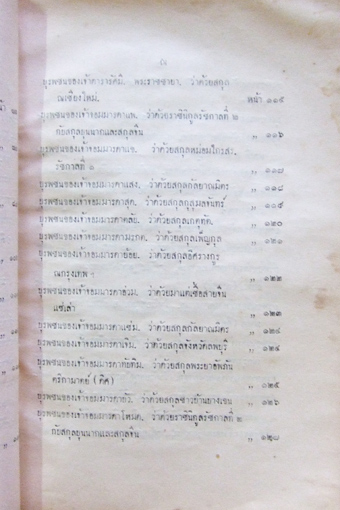 บุรพชนของเจ้าดารารัศมี พระราชชายา ว่าด้วยสกุล
ณเชียงใหม่. หน้า ๑๑๕
บุรพชนของเจ้าจอมมารดาแพ. ว่าด้วยราชินิกูลรัชกาลที่ ๒
กับสกุลบุนนาคและสกุลจีน ,, ๑๑๖
บุรพชนของเจ้าจอมมารดาแช. ว่าด้วยสกุลหม่อมไกรสร.
รัชกาลที่ ๑ ,, ๑๑๘
บุรพชนของเจ้าจอมมารดาแสง. ว่าด้วยสกุลกัลยาณมิตร ,, ๑๑๘
บุรพชนของเจ้าจอมมารดาสุด. ว่าด้วยสกุลสุกุมลจันทร์ ,, ๑๑๙
บุรพชนของเจ้าจอมมารดาตลับ. ว่าด้วยสกุลเกตุทัต. ,, ๑๒๐
บุรพชนของเจ้าจอมมารดามรกฎ. ว่าด้วยสกุลเพ็ญกุล ,, ๑๒๑
บุรพชนของเจ้าจอมมารดาย้อย. ว่าด้วยสกุลอิศรางกูร
ณกรุงเทพ ฯ ,, ๑๒๒
บุรพชนของเจ้าจอมมารดาอ่วม. ว่าด้วยมาแต่เชื้อสายจีน
แซ่เล่า ,, ๑๒๓
บุรพชนของเจ้าจอมมารดาแช่ม. ว่าด้วยสกุลกัลยาณมิตร ,, ๑๒๔
บุรพชนของเจ้าจอมมารดาเจิม. ว่าด้วยสกุลจังหวัดลพบุรี ,, ๑๒๔
บุรพชนของเจ้าจอมมารดาทับทิม. ว่าด้วยสกุลพระยาอัพภัน
ตริกามาตย์ (ดิศ) ,, ๑๒๕
บุรพชนของเจ้าจอมมารดาบัว. ว่าด้วยสกุลชาวบ้านบางเขน ,, ๑๒๖
บุรพชนของเจ้าจอมมารดาโหมด. ว่าด้วยราชินิกูลรัชกาลที่ ๒
กับสกุลบุนนาคและสกุลจีน ,, ๑๒๘